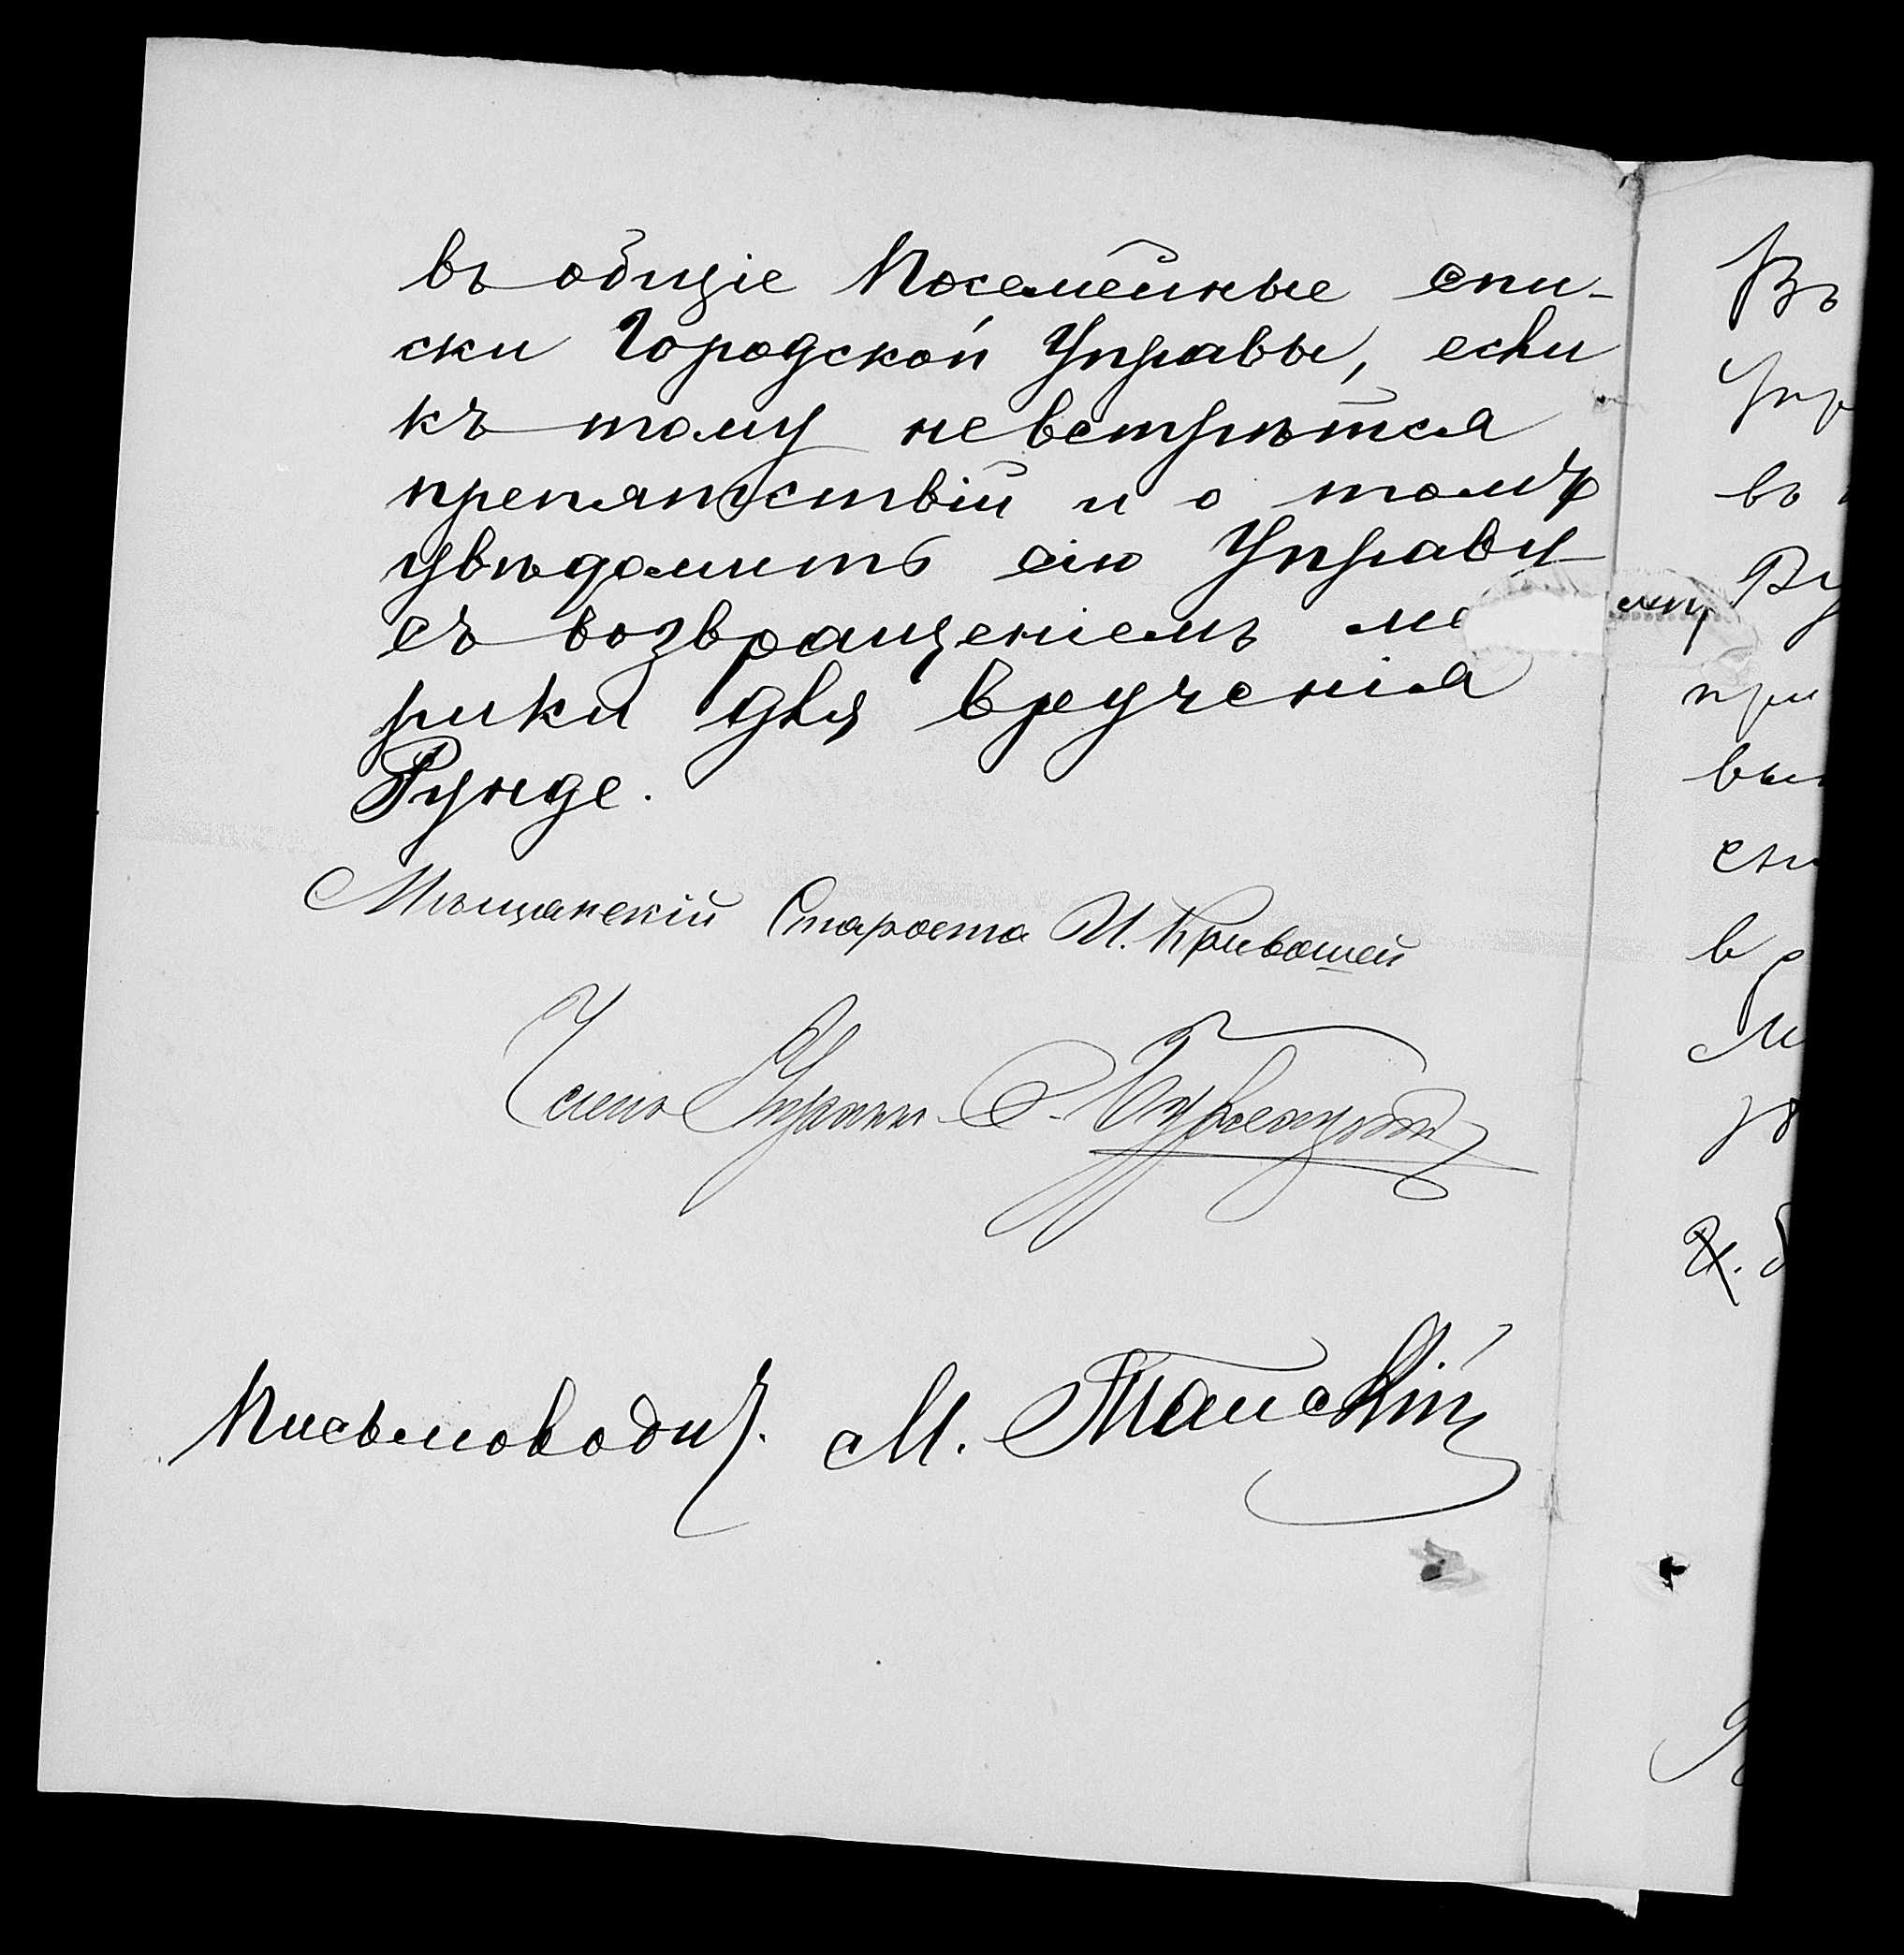 въ общіе Посемейные спи-
ски Городской Управы, если
къ тому невстрѣтся
препятствій и о томъ
увѣдомить сію Управу
съ возвращеніемъ ме
рики для врученія
Рунде.
Мѣщанскій Староста И. Кривошей
Членъ Управы
Письмоводит. М. Тапскій
Въ
Упр
въ
Ру
при
вы
сп
в